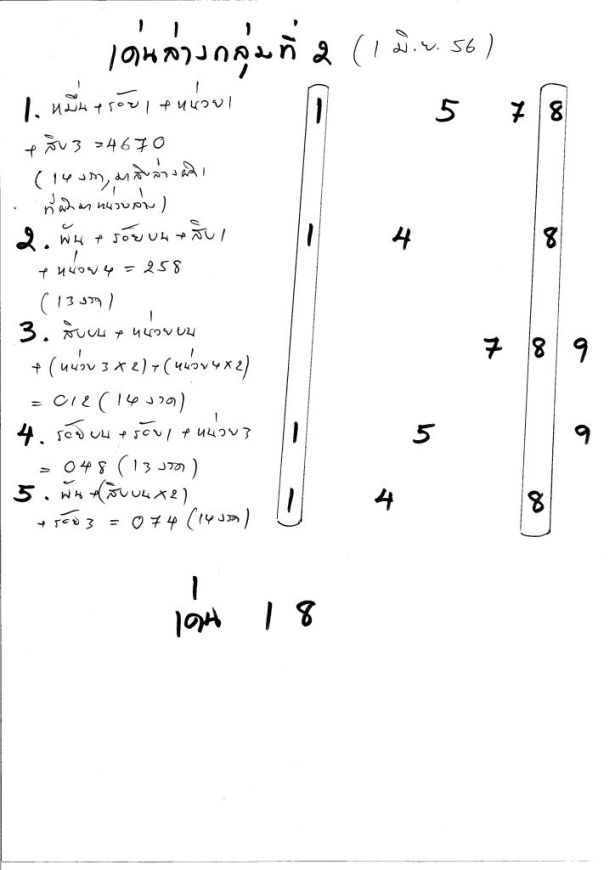 เด่นล่างกลุ่มที่ 2 (1 มิ.ย. 56)
1. หมื่น + ร้อย1 + หน่วย1 1 5 7 8
+ สิบ3 = 4670
(14 งวด, มาสิบล่างผิด1
ที่ผิดมาหน่วยล่าง)
2. พัน + ร้อยบน + สิบ1 1 4 8
+ หน่วย4 = 258
(13 งวด)
3. สิบบน + หน่วยบน 7 8 9
+ (หน่วย3x2) + (หน่วย4x2)
= 012 (14 งวด)
4. ร้อยบน + ร้อย1 + หน่วย3 1 5 9
= 048 (13 งวด)
5. พัน + (สิบบนx2) 1 4 8
+ ร้อย3 = 074 (14 งวด)
เด่น 1 8